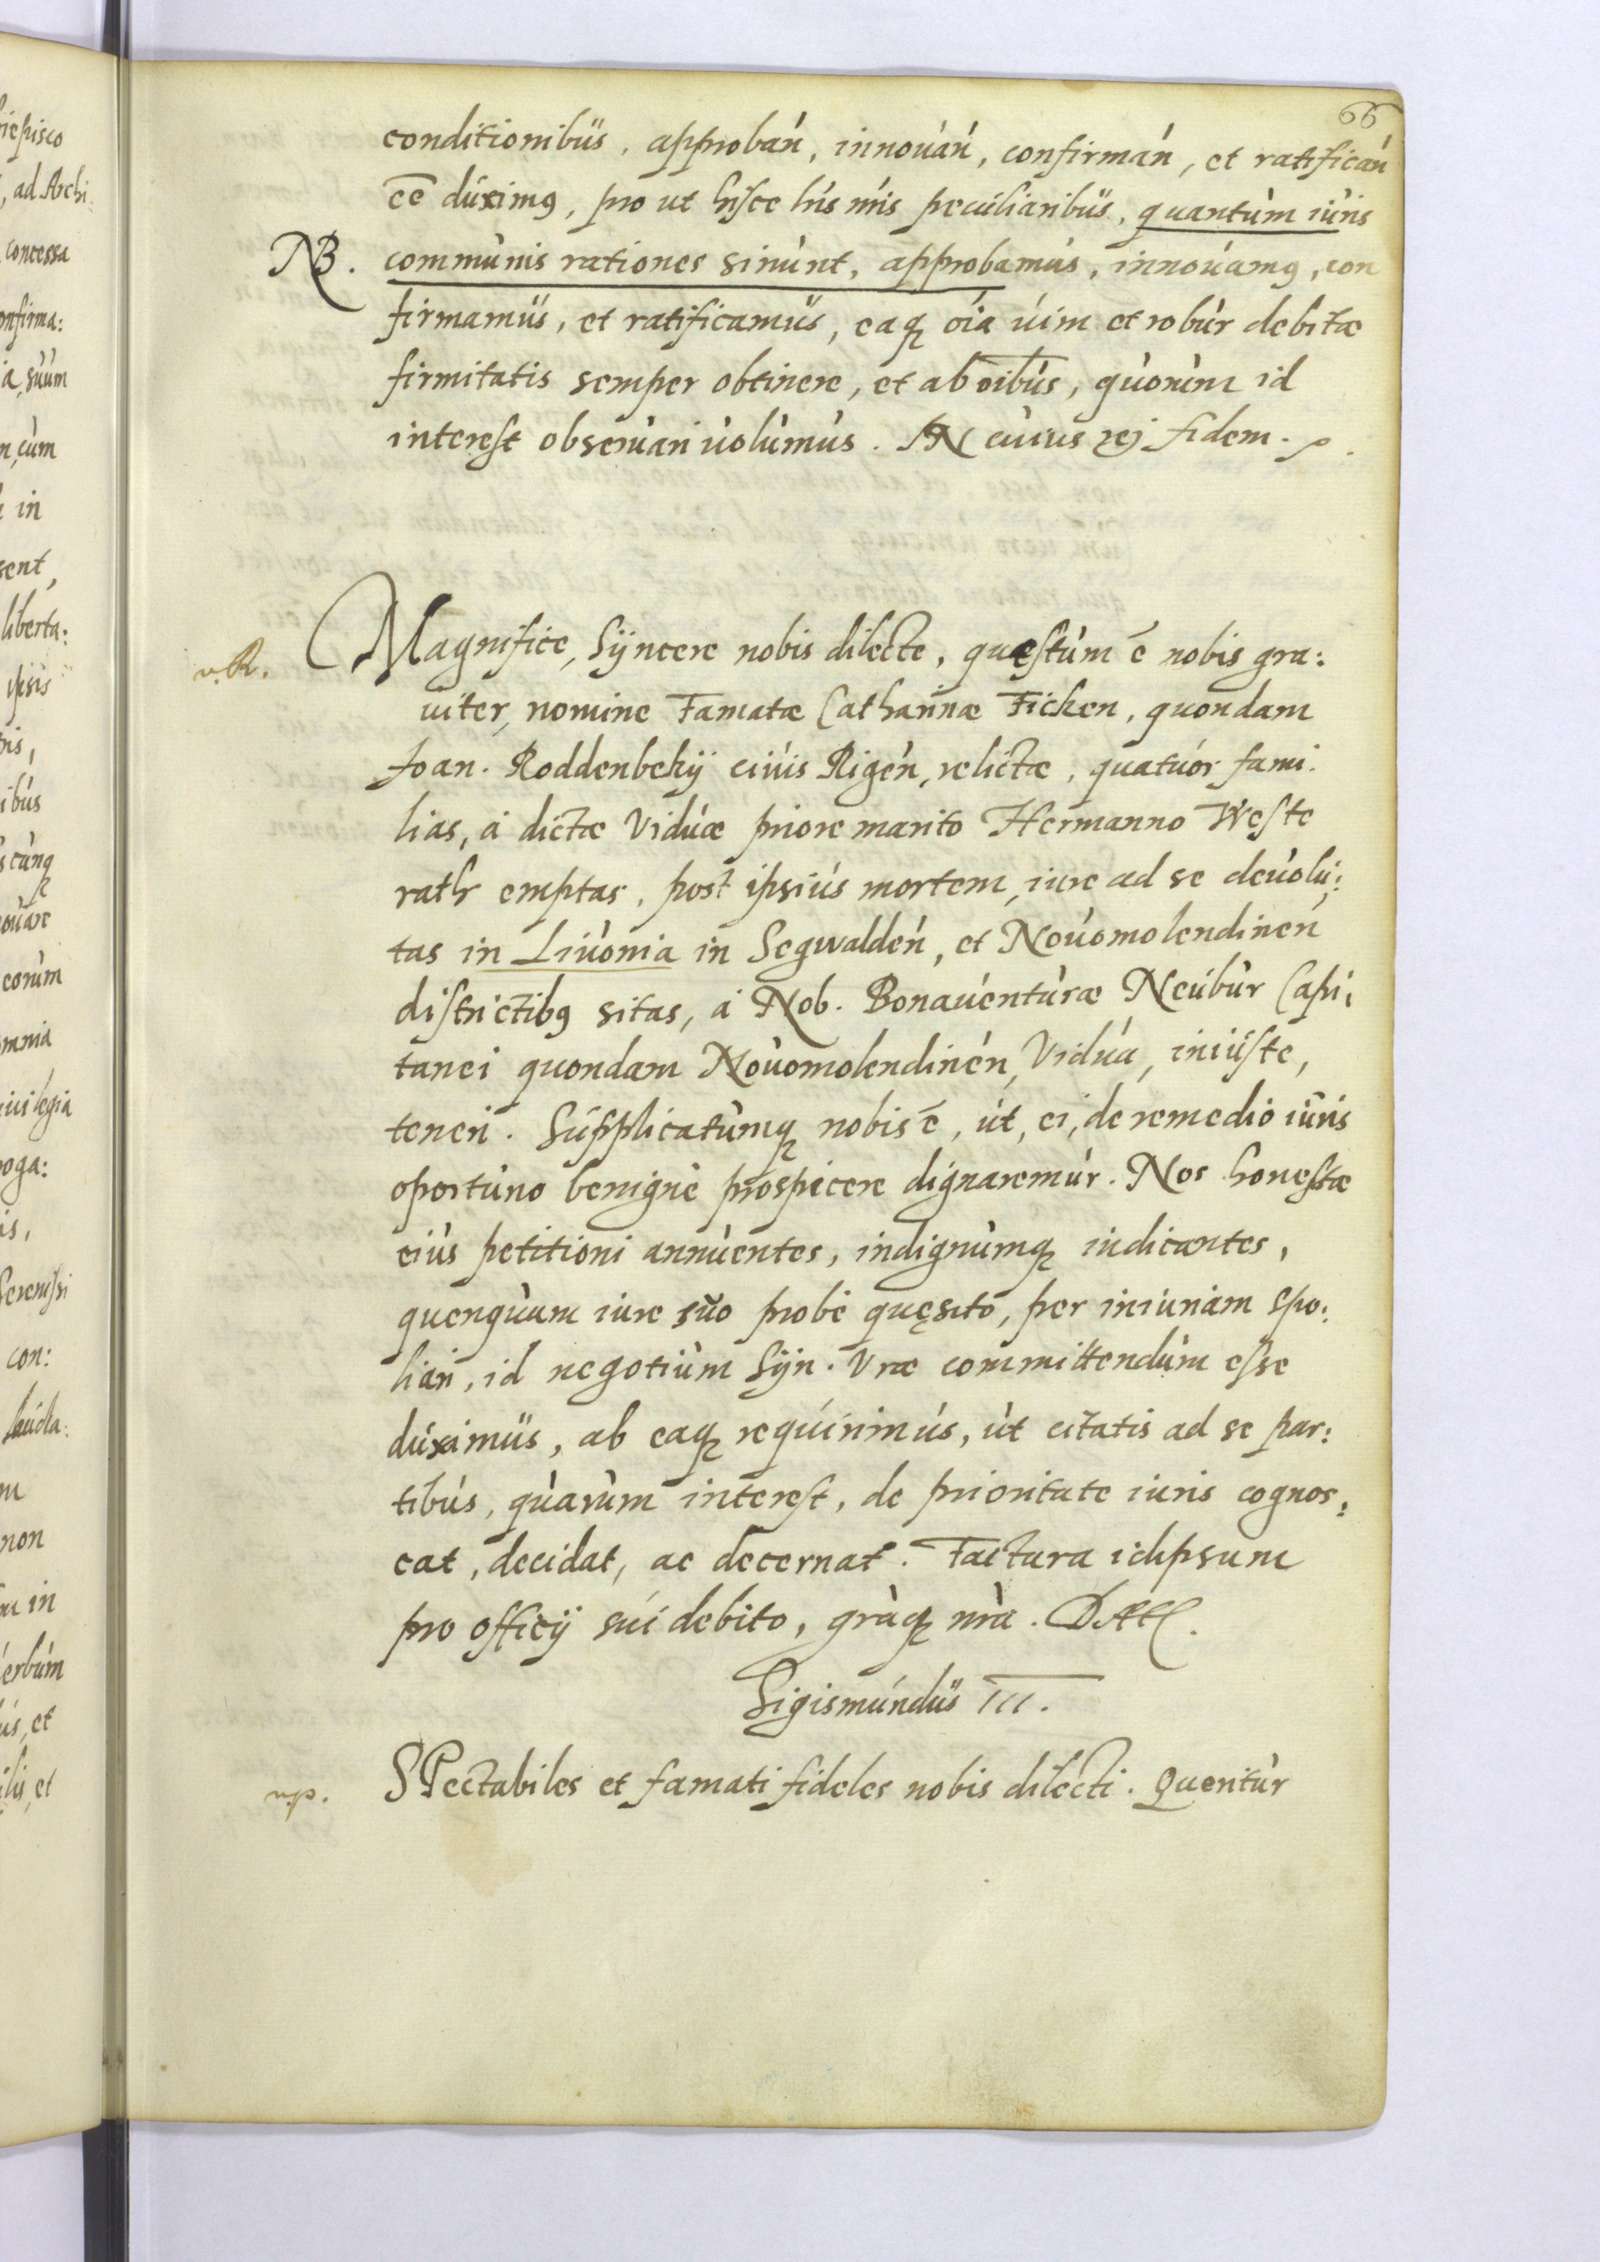 66
conditionibus, approbań, innovań, confirmań, et ratificań
eē duximꝯ, pro ut hisce lr̃is nr̃is peculiaribus, quantum iuris
NB. communis rationes sinunt, approbamus, innovamꝯ, con
firmamus, et ratificamus, eaqꝫ oi̅a uim et robur debitæ
firmitatis semper obtinere, et ab oi̅bus, quorum id
interest obseruari uolumus. IN cuius rej fidem.
v.R. Magnifice, Syncere nobis dilecte, quæstum ē nobis gra:
uiter, nomine Famatæ Catharinæ Ficken, quondam
Joan. Roddenbekij ciuis Rigeń, relictæ, quatuor fami:
lias, à dictæ Viduæ priore marito Hermanno Weste
rath emptas, post ipsius mortem, iure ad se deuolu:
tas in Liuonia in Segwaldeń, et Nouomolendineń
districtibꝯ sitas, à Nob. Bonauenturæ Neubur Capi:
tanei quondam Nouomolendineń, Vidua, iniuste,
teneri. Supplicatumqꝫ nobis ē, ut, ei, de remedio iuris
oportuno benignè prospicere dignaremur. Nos honestæ
eius petitioni annuentes, indignumqꝫ iudicantes,
quenquam iure suo probè quęsito, per iniuriam spo:
liari, id negotium Syn. Vræ committendum esse
duximus, ab eaqꝫ requirimus, ut citatis ad se par:
tibus, quarum interest, de prioritate iuris cognos:
cat, decidat, ac decernat. Factura id ipsum
pro officij sui debito, gr̃aqꝫ nr̃a. Datt.
Sigismundus III.
n.p. SPectabiles et famati fideles nobis dilecti. Queritur